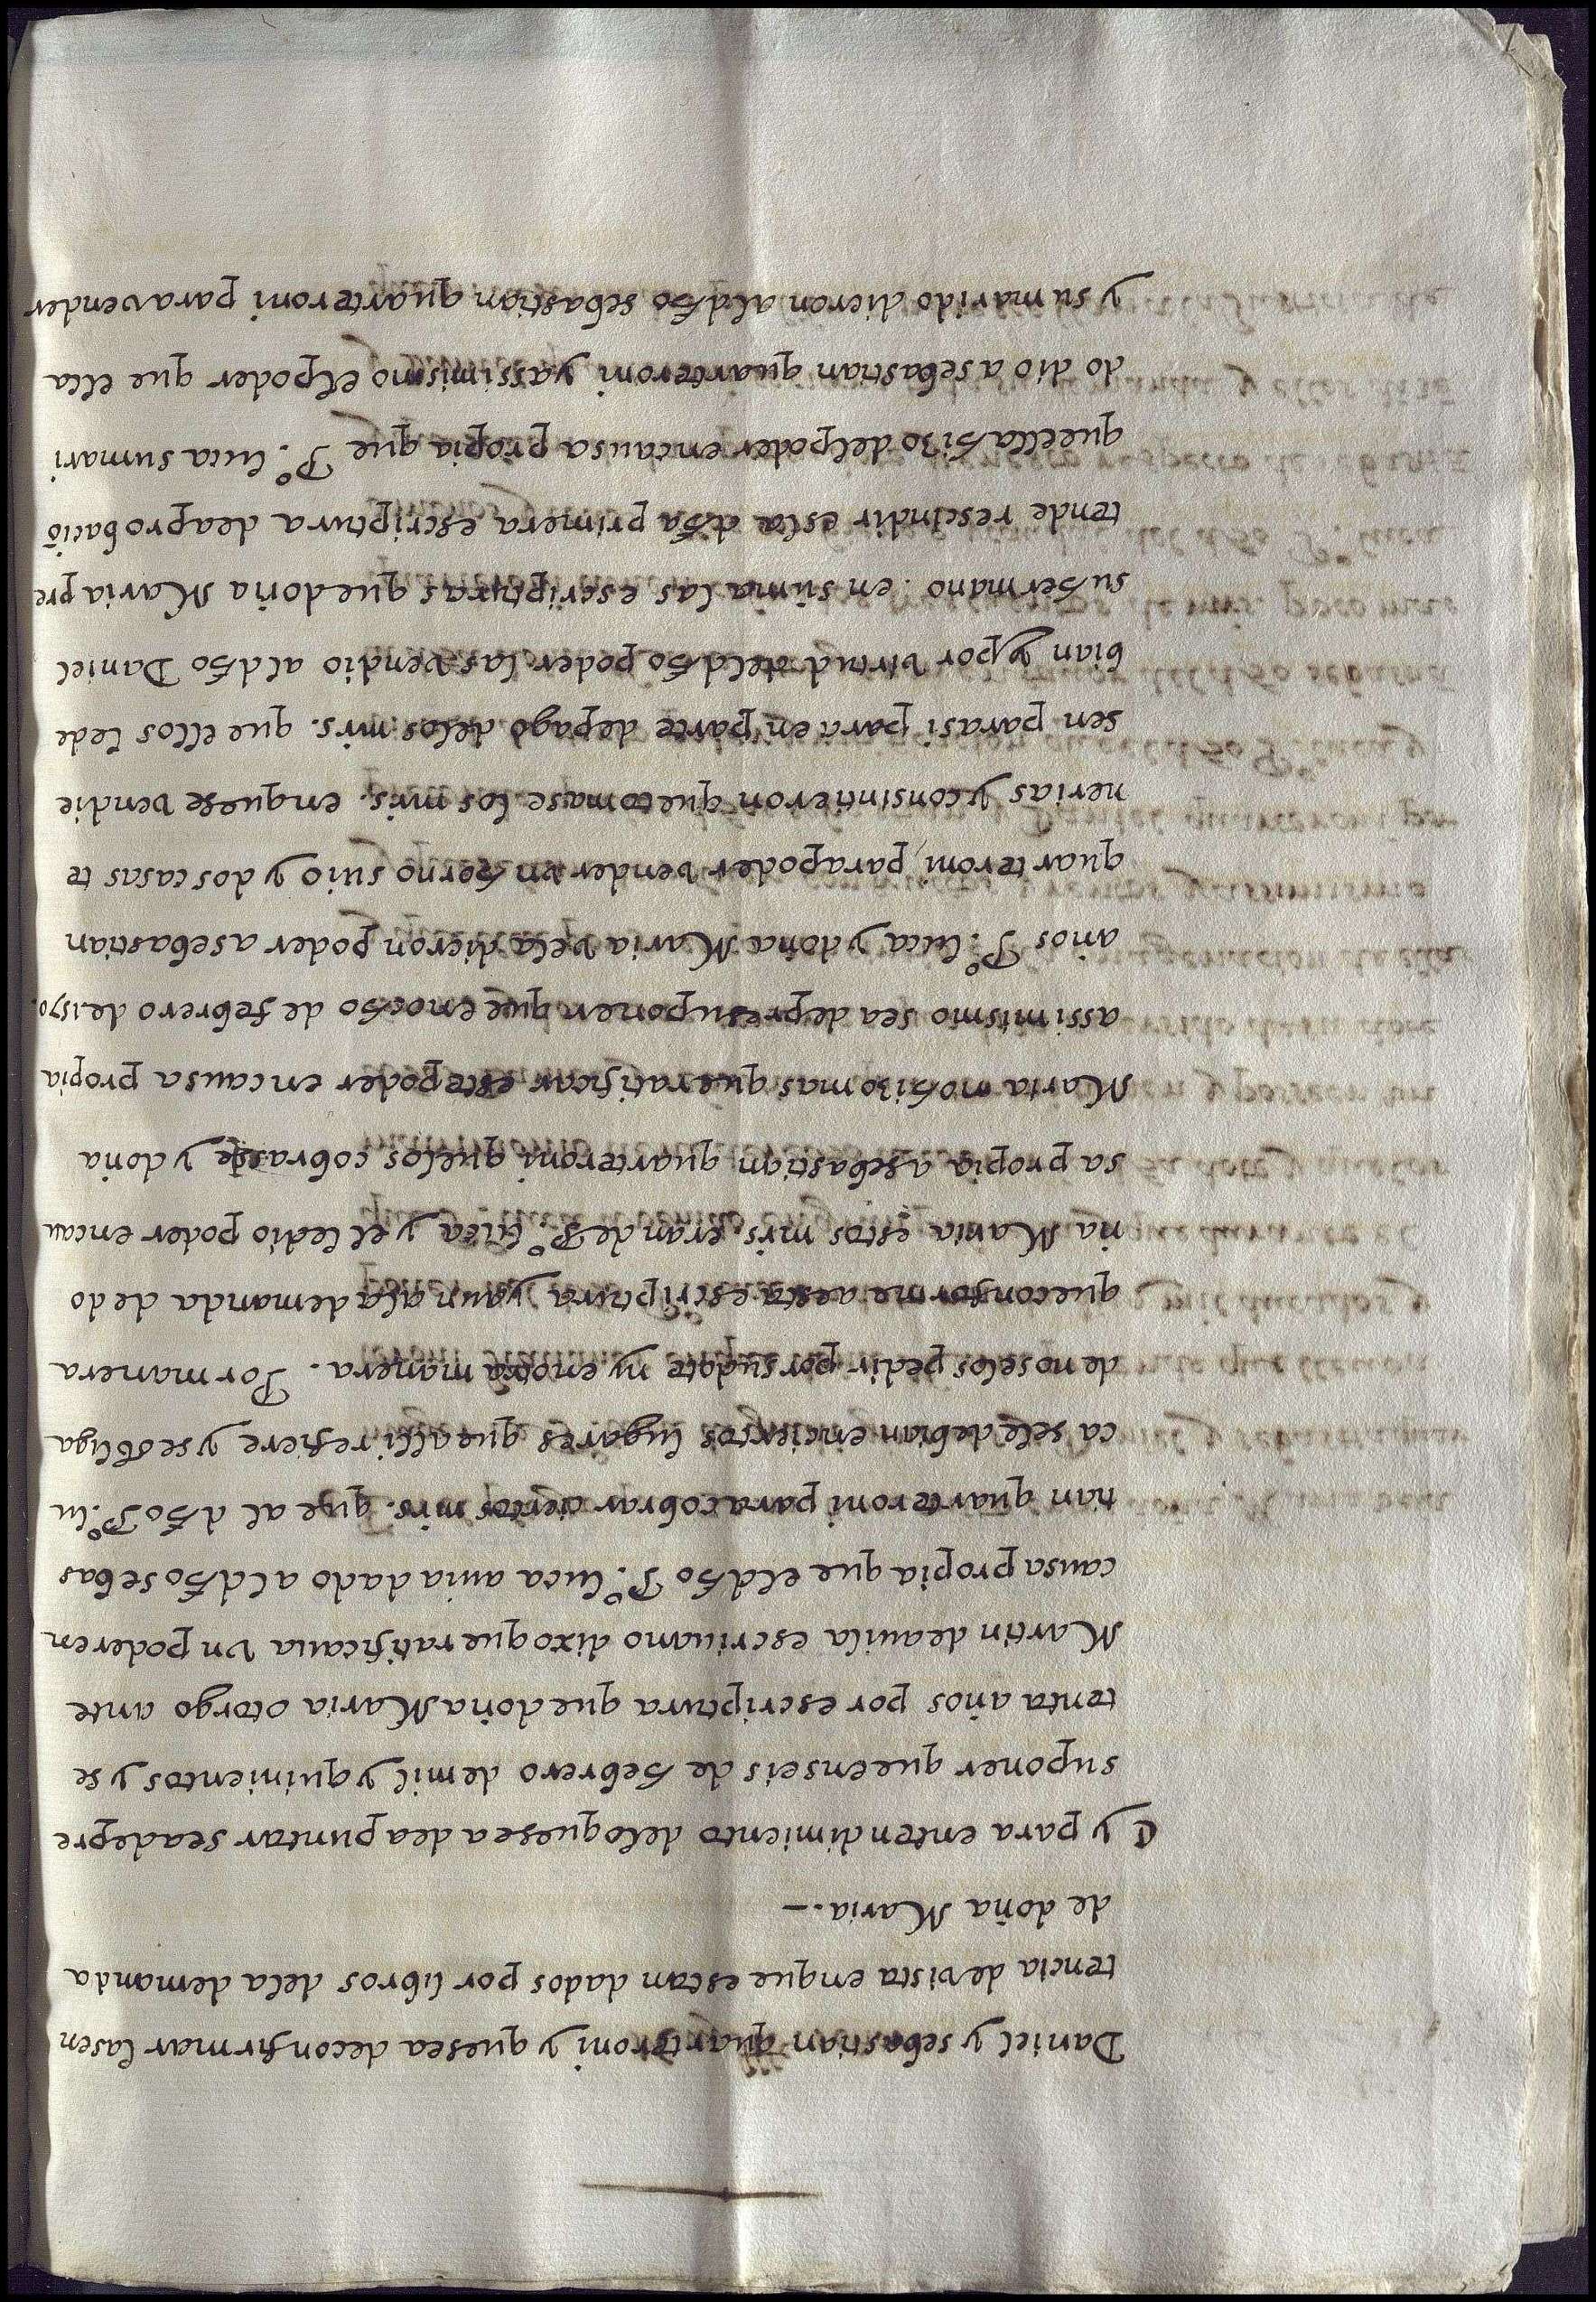 Daniel y sebastian quarteroni y quesea deconfirmar lasen
tencia devista enque estan dados por libros dela demanda
de doña Maria.-
y para entendimiento deloquesea deapuntar seadepre
suponer queenseis de hebrero demil y quinientos y se
tenta años por escriptura quedoña Maria otorgo ante
Martin deauila escriuano dixo queratificaua vn poderen
causa propia que eldho Pº. luca auia dado aldho sebas
tian quarteroni paracobrar ciertos mrs. que al dho Pº. lu
ca sele debian enciertos lugares quealli refiere y seobliga
denoselos pedir por sudote ny enotra manera. Por manera
queconforme aesta escriptura yaun ala demanda de do
ña Maria estos mrs. eran de Pº. luca y el ledio poder encau
sa propia a sebastian quarteroni quelos cobrasse y doña
Maria nohizo mas queratificar estepoder encausa propia
assimismo sea depresuponer que enocho de febrero de.1570.
años Pº. luca y doña Maria vela dieron poder a sebastian
quarteroni, parapoder vender vn horno suio y dos casas te
nerias y consintieron quetomase los mrs. enquese vendie
sen parasi para en parte depago delos mrs. que ellos lede
bian y por virtud deldho poder las vendio aldho Daniel
suhermano. en suma las escripturas quedoña Maria pre
tende rescindir es la dha primera escriptura deaprobació
queella hizo delpoder encausa propia que Pº. luca sumari
do dio a sebastian quarteroni yassimismo elpoder que ella
y sumarido dieron aldho sebastian quarteroni para vender